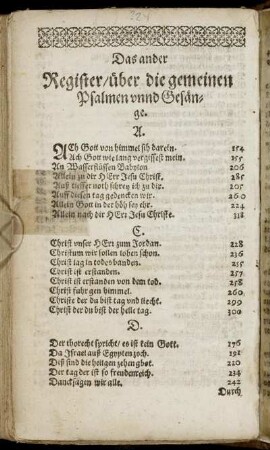 Das ander
Register/über die gemeinen
Psalmen vnnd Gesän-
ge.
A.
ACh Gott von himmel sih darein. 154
Ach Gott wie lang vergissest mein. 155
An Wasserflüssen Babylon 206
Allein zu dir HErr Jesu Christ. 285
Auß tieffer noth schrey ich zu dir. 205
Auff diesen tag gedencken wir. 260
Allein Gott in der höh sey ehr. 224
Allein nach dir HErr Jesu Christe. 318
C.
Christ vnser HErr zum Jordan. 228
Christum wir sollen loben schon. 236
Christ lag in todesbanden. 255
Christ ist erstanden. 257
Christ ist erstanden von dem tod. 258
Christ fuhr gen himmel. 260
Christe der du bist tag vnd liecht. 299
Christ der du bist der helle tag. 300
D.
Der thorecht spricht/ es ist kein Gott. 176
Da Israel auß Egypten zoch. 191
Diß sind die heilgen zehen gbot. 220
Der tag der ist so freudenreich. 234
Dancksagen wir alle. 242
Durch